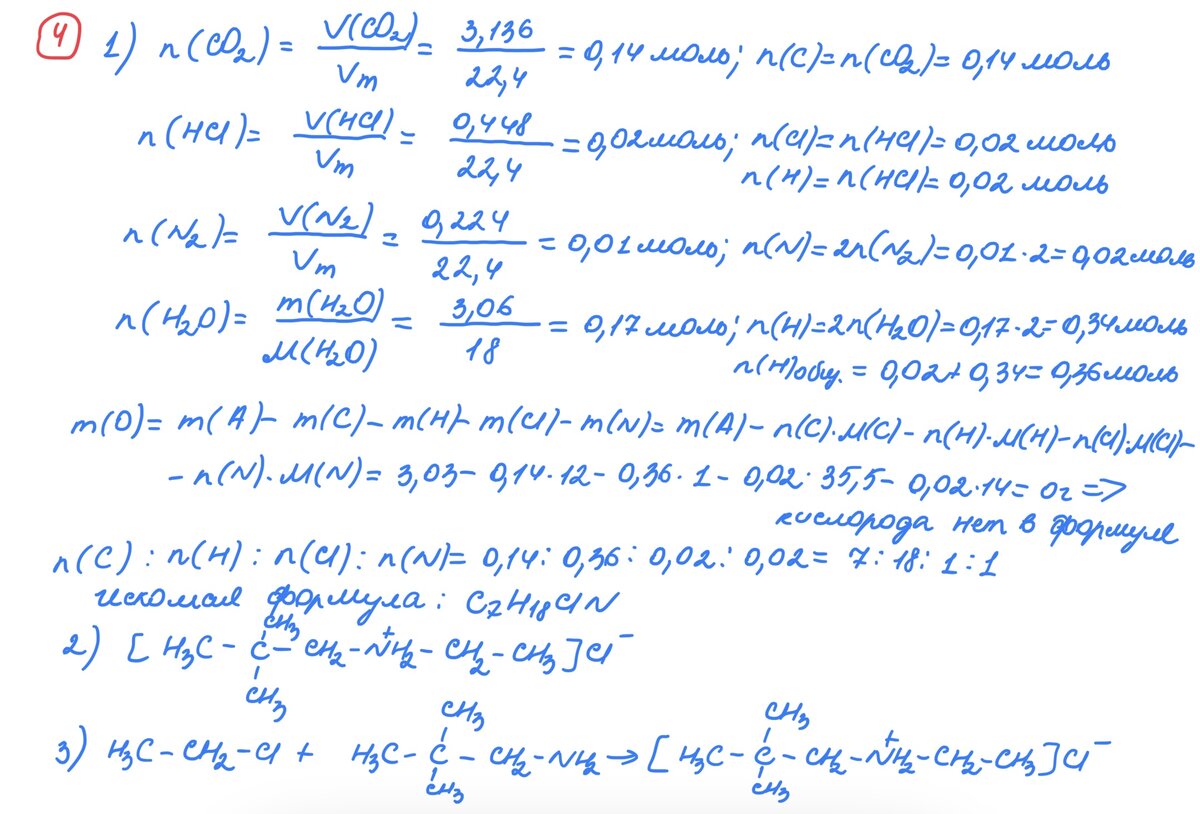 4
1) n(CO₂) = V(CO₂)/Vm = 3,136/22,4 = 0,14 моль; n(C)=n(CO₂)= 0,14 моль
n(HCl)= V(HCl)/Vm = 0,448/22,4 = 0,02 моль; n(Cl)= n(HCl)= 0,02 моль
n(H)= n(HCl)= 0,02 моль
n(N₂)= V(N₂)/Vm = 0,224/22,4 = 0,01 моль; n(N)= 2n(N₂)= 0,01·2= 0,02 моль
n(H₂O)= m(H₂O)/M(H₂O) = 3,06/18 = 0,17 моль; n(H)=2n(H₂O)=0,17·2= 0,34 моль
n(H)общ. = 0,02+0,34= 0,36 моль
m(O)= m(A)– m(C)– m(H)– m(Cl)– m(N)= m(A)– n(C)·M(C)– n(H)·M(H)–n(Cl)·M(Cl)–
– n(N)·M(N)= 3,03– 0,14·12– 0,36·1– 0,02·35,5– 0,02·14= 0г =>
кислорода нет в формуле
n(C) : n(H) : n(Cl) : n(N)= 0,14 : 0,36 : 0,02 : 0,02 = 7 : 18 : 1 : 1
искомая формула : C₇H₁₈ClN
CH₃
2) [ H₃C – C – CH₂ – N⁺H₂ – CH₂ – CH₃ ] Cl⁻
CH₃
CH₃ CH₃
3) H₃C – CH₂ – Cl + H₃C – C – CH₂ – NH₂ → [ H₃C – C – CH₂ – N⁺H₂ – CH₂ – CH₃ ] Cl⁻
CH₃ CH₃